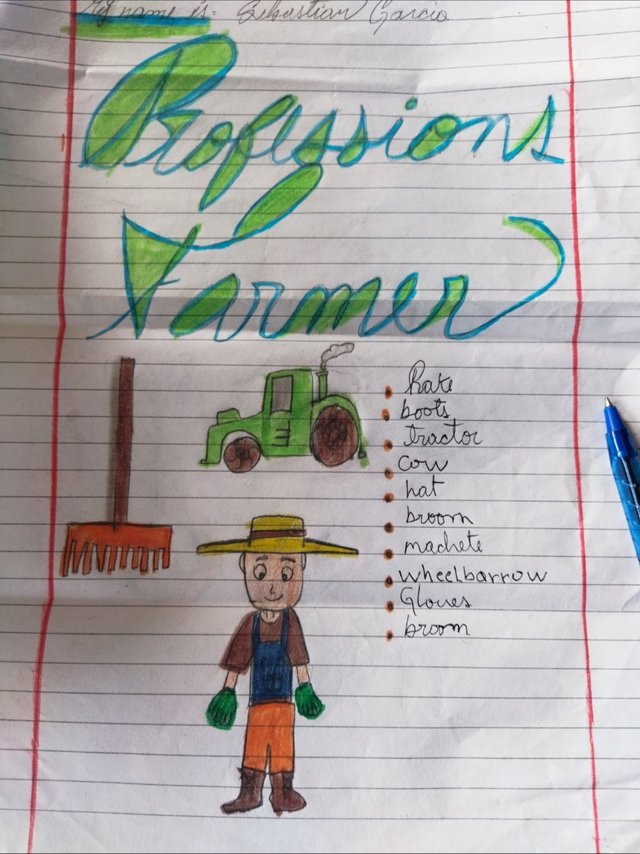 My name is: Sebastian Garcia
Professions
Farmer
Rake
boots
tractor
cow
hat
broom
machete
wheelbarrow
Gloves
broom